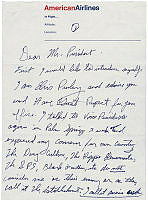 AmericanAirlines
In Flight...
Altitude;
Location;
Dear Mr. President.
First I would like to introduce myself.
I am Elvis Presley and admire you
and Have Great Respect for your
office. I talked to Vice President
Agnew in Palm Springs 3 weeks ago and
expressed my concern for our country.
The Drug Culture, The Hippie Elements,
The SDS, Black Panthers, etc do not
consider me as their enemy or as they
call it The Establishment. I call it